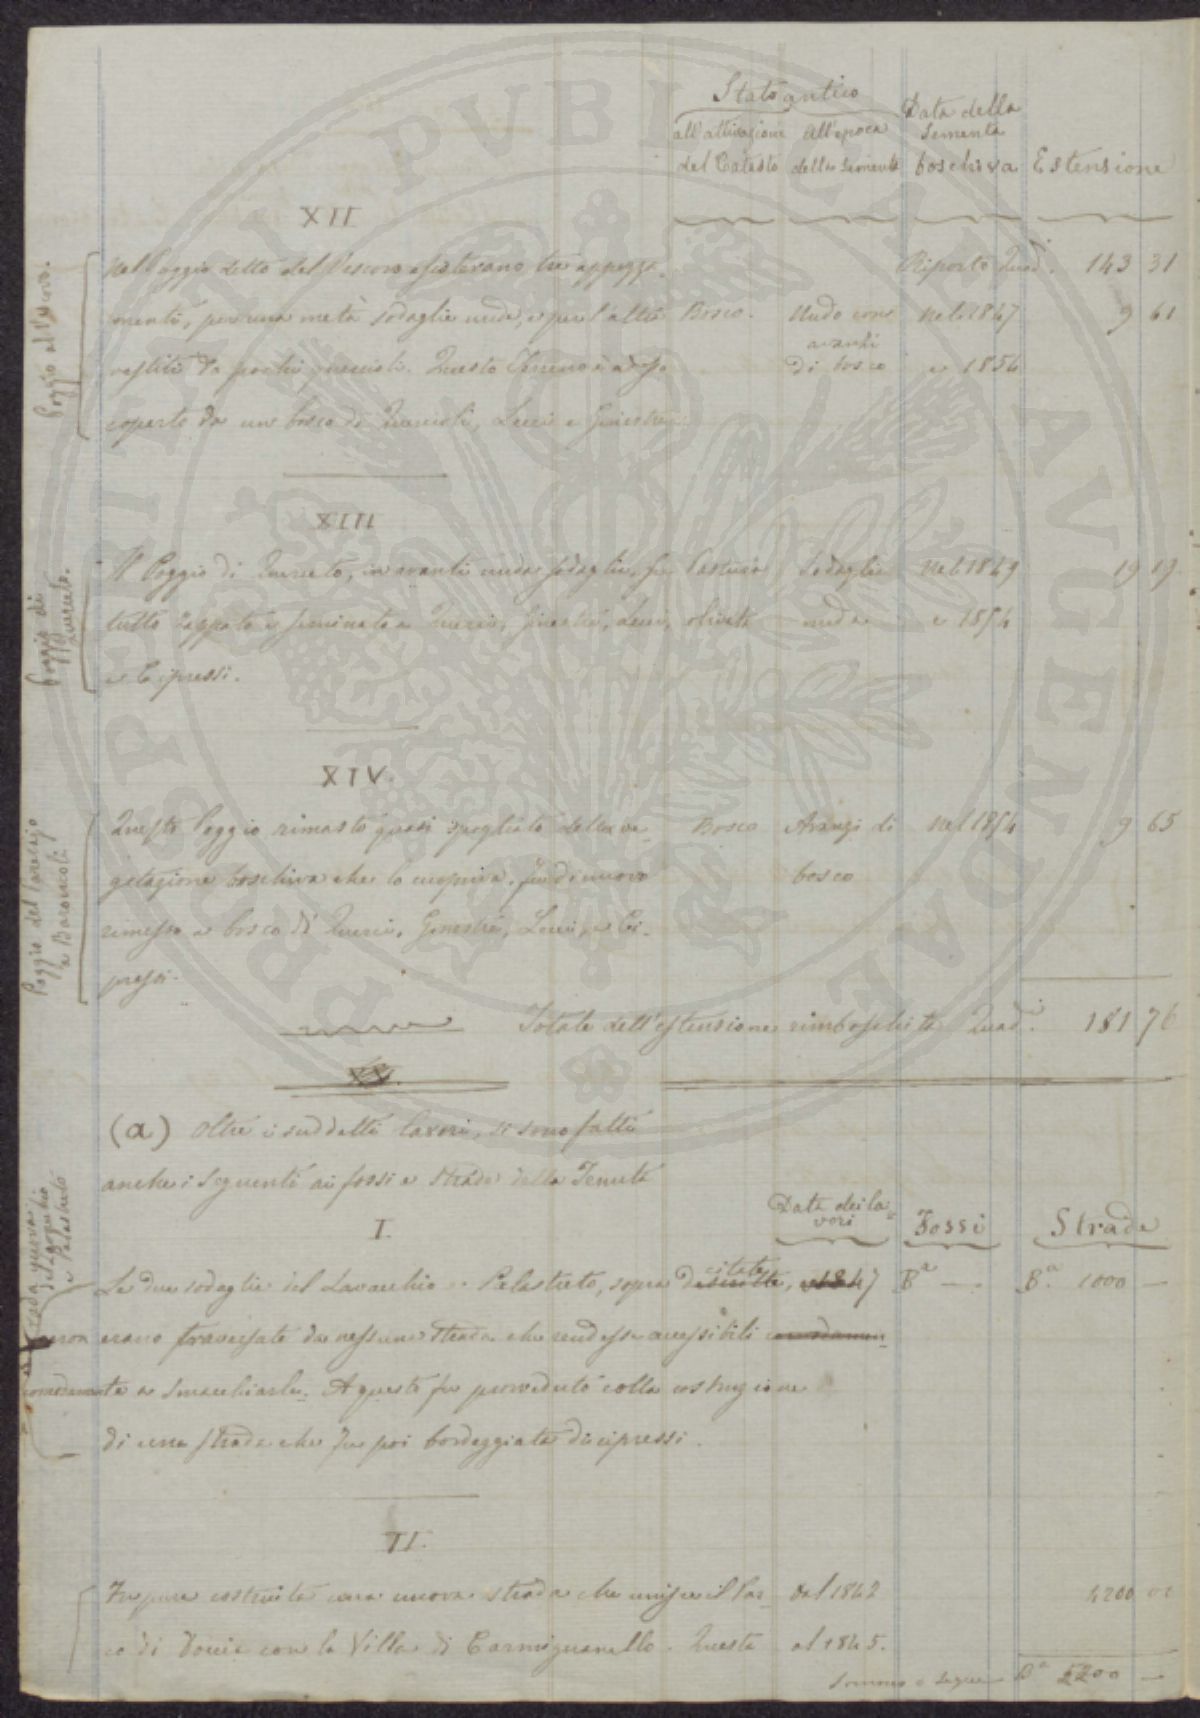 Stato antico
all'attivazione All'epoca Data della
del Catasto della Sementa Sementa
boschiva Estensione
XII
Poggio al Vescovo.
Nel Poggio detto del Vescovo esistevano tre appezza- Riporto Quad.i 143 31
menti, per una metà sodaglie nude, e per l'altra Bosco. Nudo con Nel 1847 9 61
avanzi
vestiti da pochi quercioli. Questo Terreno è adesso di bosco e 1854
coperto da un bosco di Quercioli, Lecci e Ginestre.
XIII
Poggio di Querceto.
Il Poggio di Querceto, in avanti nuda sodaglia, fu Pastura Sodaglia Nel 1849 19 19
tutto zappato e seminato a Querci, ginestre, Lecci, olivata nuda e 1854
e Cipressi.
XIV.
Poggio del
a Baroncoli
Questo Poggio rimasto quasi spogliato della ve- Bosco Avanzi di Nel 1854 9 65
getazione boschiva che lo cuopriva, fu di nuovo bosco
rimesso a bosco di Querci, Ginestre, Lecci, e Ci-
pressi.
Totale dell'estensione rimboschita Quad.i 181 76
XV.
(a) Oltre i suddetti lavori, si sono fatti
anche i seguenti ai fossi e strade della Tenuta
I. Data dei la-
vori Fossi Strade
Strada nuova
del Lavacchio
e Pelastreto
Le due sodaglie del Lavacchio e Pelastreto, sopra descritte citate, 1847 B.a — B.a 1000 —
non erano traversate da nessuna strada che rendesse accessibili comodamen-
comodamente a smacchiarle. A questo fu proveduto colla costruzione
di una strada che fu poi bordeggiata di cipressi.
II.
Fu pure costruita una nuova strada che unisce il Par- Dal 1842 4200
co di Doccia con la Villa di Carmignanello. Questa al 1845.
Somma e segue B.a 5200 —